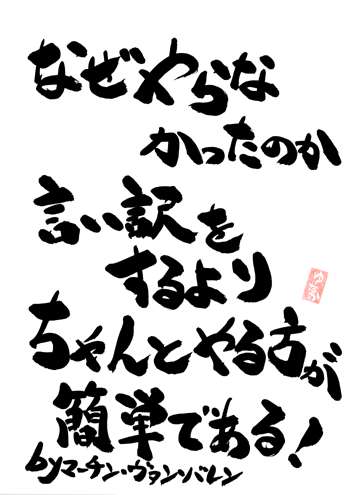 なぜやらな
かったのか
言い訳を
するより
ちゃんとやる方が
簡単である!
byマーチン・ヴァンバレン